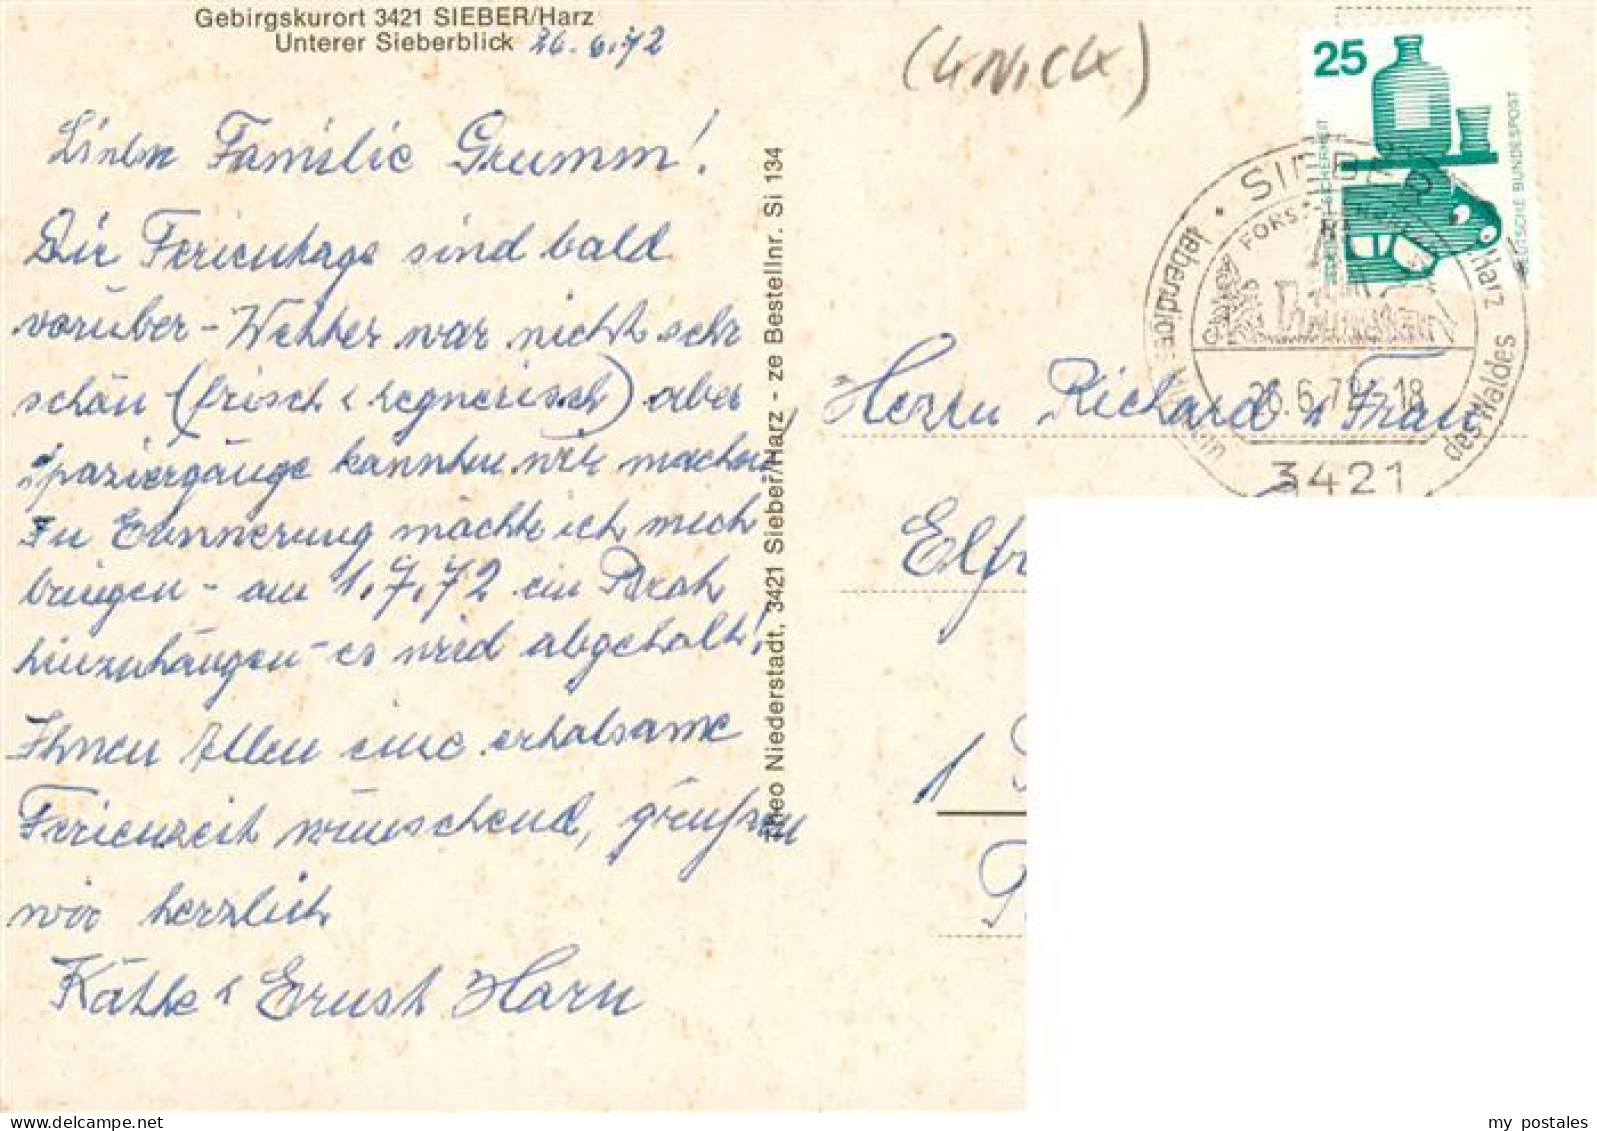 Gebirgskurort 3421 SIEBER/Harz
Unterer Sieberblick 26.6.72
Lieben Familie Grumm!
Die Ferientage sind bald
vorüber - Wetter war nicht sehr
schön (frisch & regnerisch) aber
Spaziergänge konnten wir machen
In Erinnerung möchte ich mich
bringen - am 1.7.72 ein Brot
hinzuhängen - es wird abgeholt!
Ihnen Allen eine erholsame
Ferienzeit wünschend, grüßen
wir herzlich
Käthe & Ernst Horn
Theo Niederstadt, 3421 Sieber/Harz - ze Bestellnr. Si 134
(KNICK)
25
DEUTSCHE BUNDESPOST
SIEBER
Harz
des Waldes
26.6.72-18
3421
Herrn Richard & Frau
Elfr
1
my postales